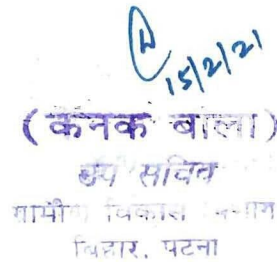 15/2/21
(कनक बाला)
उप सचिव
ग्रामीण विकास विभाग
बिहार, पटना